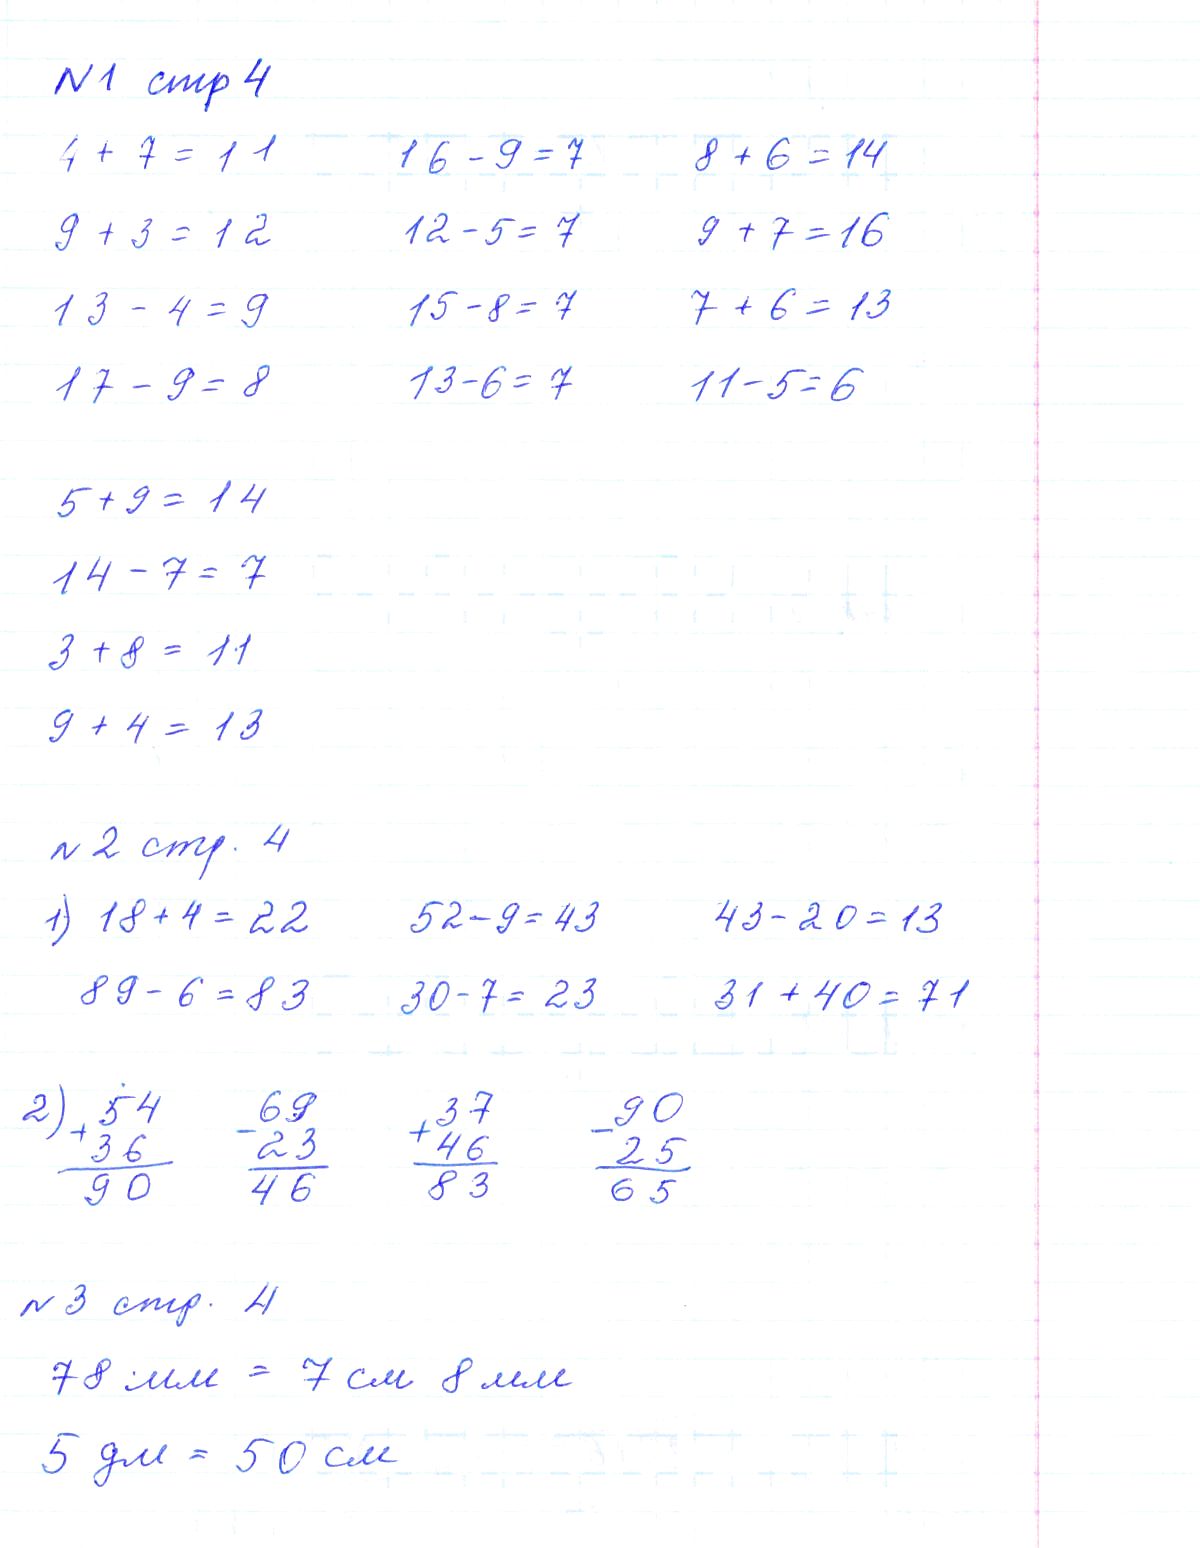 N1 стр 4
4 + 7 = 11 16 - 9 = 7 8 + 6 = 14
9 + 3 = 12 12 - 5 = 7 9 + 7 = 16
13 - 4 = 9 15 - 8 = 7 7 + 6 = 13
17 - 9 = 8 13 - 6 = 7 11 - 5 = 6
5 + 9 = 14
14 - 7 = 7
3 + 8 = 11
9 + 4 = 13
N2 стр. 4
1) 18 + 4 = 22 52 - 9 = 43 43 - 20 = 13
89 - 6 = 83 30 - 7 = 23 31 + 40 = 71
2) + 54 - 69 + 37 - 90
36 23 46 25
90 46 83 65
N3 стр. 4
78 мм = 7 см 8 мм
5 дм = 50 см